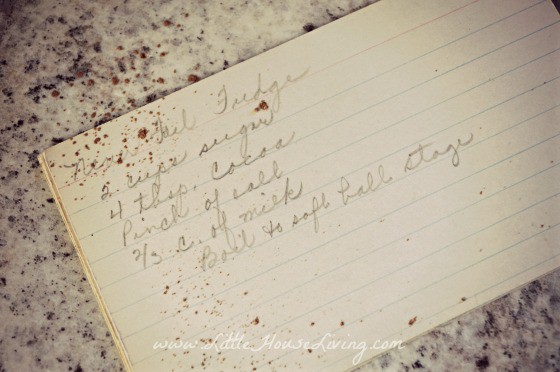 Never Fail Fudge
2 cups sugar
4 tbsp. cocoa
Pinch of salt
2/3 c. of milk
Boil to soft ball stage
www.LittleHouseLiving.com